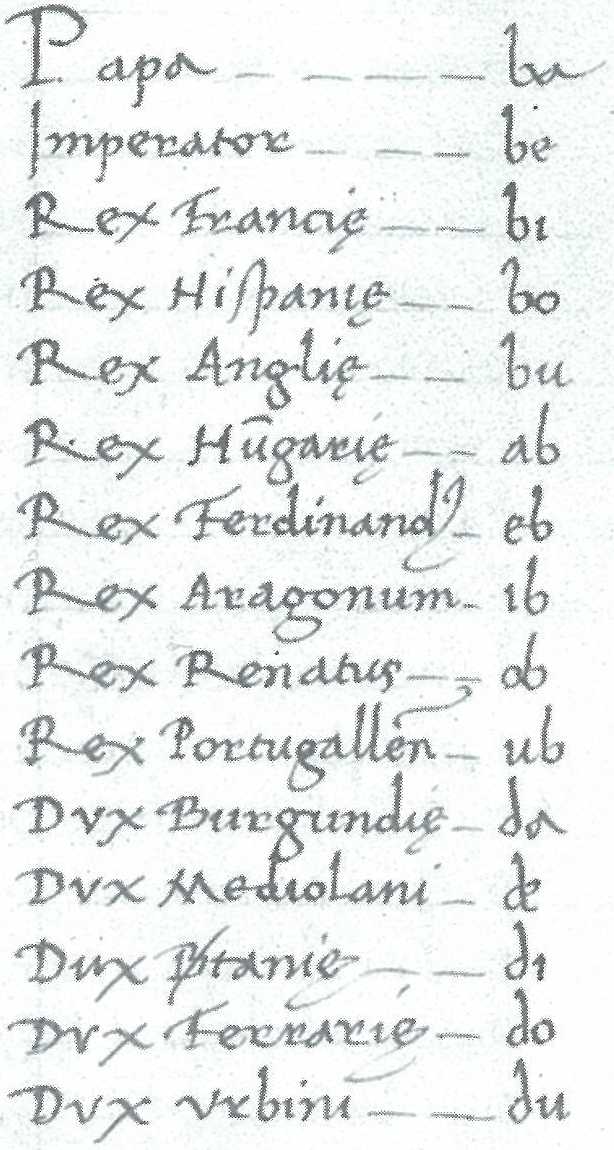 Papa — — — — ba
Imperator — — — be
Rex Francię — — bi
Rex Hiſpanię — — bo
Rex Anglię — — bu
Rex Hūgarię — — ab
Rex Ferdinandꝰ — eb
Rex Aragonum — ib
Rex Renatus — — ob
Rex Portugallēn — ub
Dvx Burgundię — da
Dvx Mediolani — de
Dux — — di
Dvx Ferrarię — do
Dvx Vrbini — — du